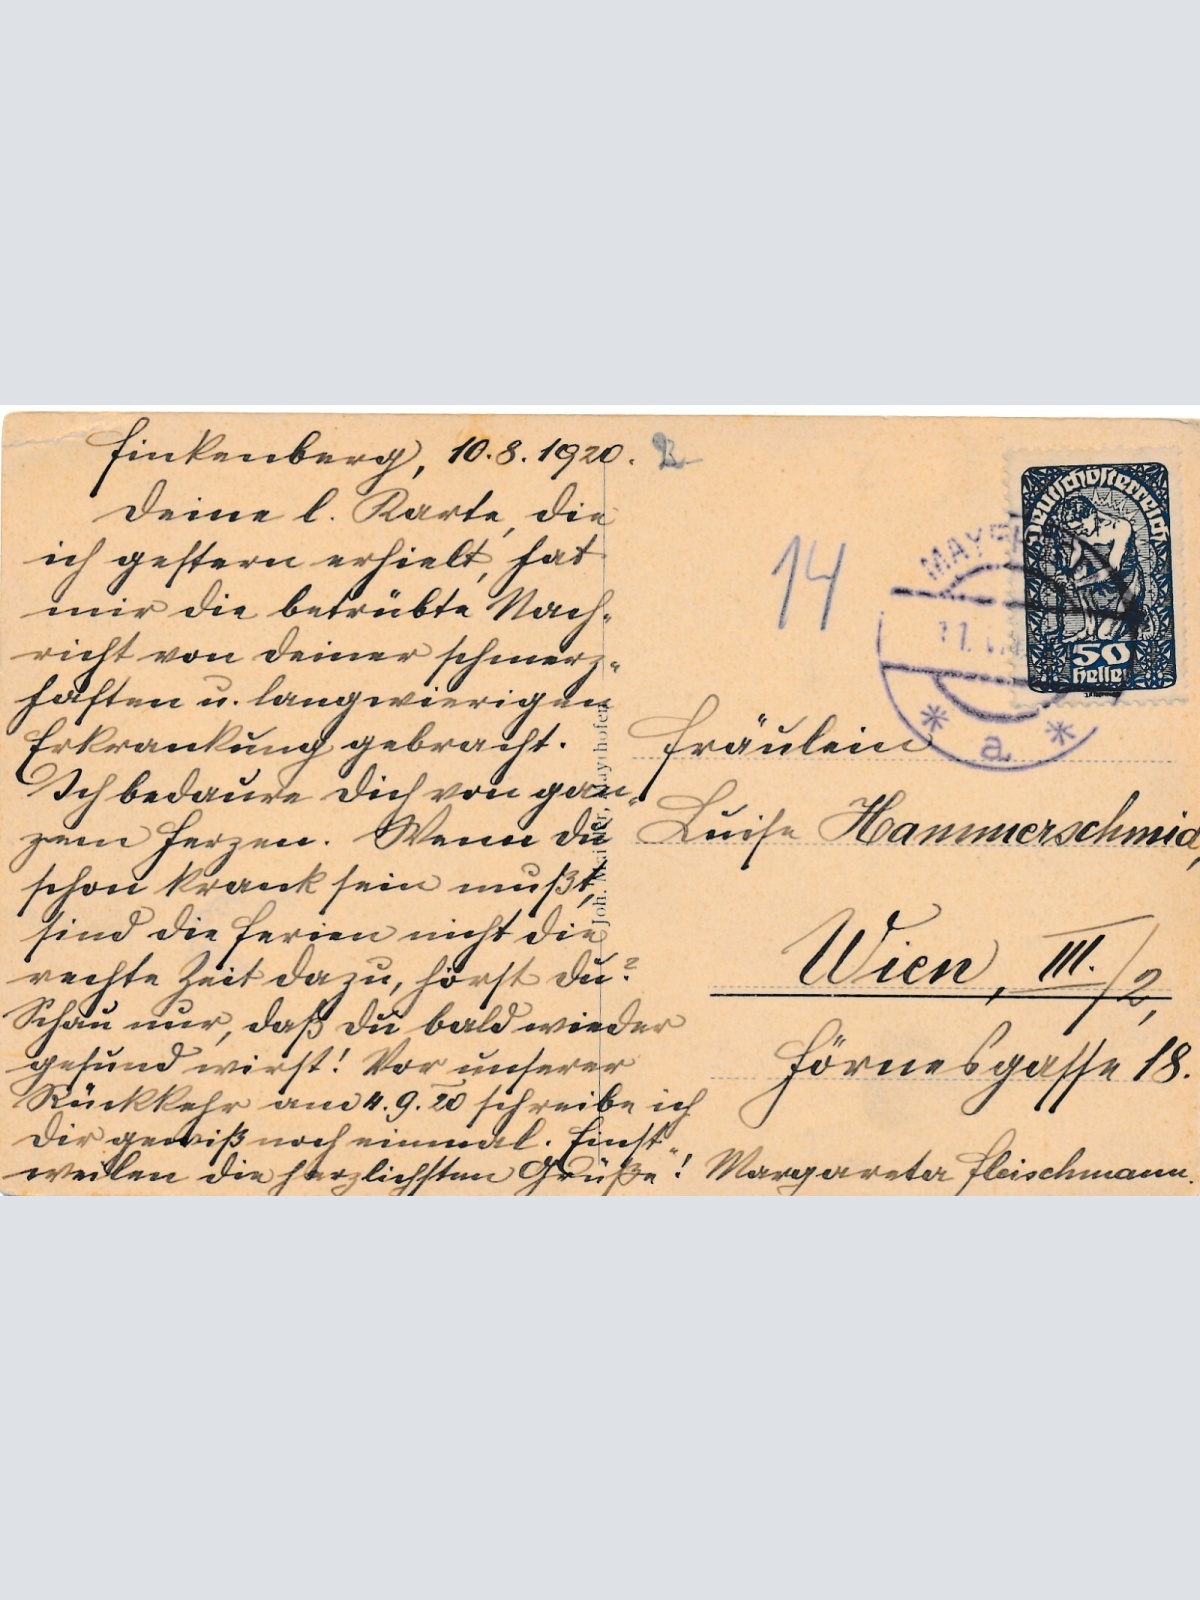 Finkenberg, 10.8.1920.
Deine l. Karte, die
ich gestern erhielt, hat
mir die betrübte Nach-
richt von Deiner schmerz-
haften u. langwierigen
Erkrankung gebracht.
Ich bedaure Dich von gan-
zem Herzen. Wenn Du
schon krank sein mußt,
sind die Ferien nicht die
rechte Zeit dazu, hörst Du?
Schau nur, daß Du bald wieder
gesund wirst! Vor unserer
Rückkehr am 4.9.20 schreibe ich
Dir gewiß noch einmal. Einst-
weilen die herzlichsten Grüße! Margareta Fleischmann.
14
Deutschösterreich
50
Heller
11.
a
Fräulein
Luise Hammerschmid,
Wien, III./2,
Hörnesgasse 18.
Joh. Mayrhofen